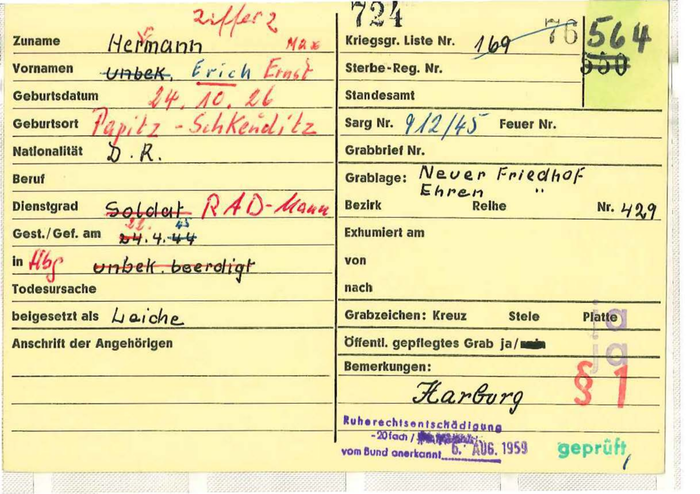 Ziffer 2
Zuname Hermann
Max
Vornamen unbek. Erich Ernst
Geburtsdatum 24. 10. 26
Geburtsort Papitz - Schkeuditz
Nationalität D. R.
Beruf
Dienstgrad Soldat RAD-Mann
22. 45
Gest./Gef. am 24. 4. 44
in Hbg unbek. beerdigt
Todesursache
beigesetzt als Leiche
Anschrift der Angehörigen
724
Kriegsgr. Liste Nr. 169 76 564
Sterbe-Reg. Nr. 550
Standesamt
Sarg Nr. 912/45 Feuer Nr.
Grabbrief Nr.
Grablage: Neuer Friedhof
Ehren "
Bezirk Reihe Nr. 429
Exhumiert am
von
nach
Grabzeichen: Kreuz Stele Platte
Öffentl. gepflegtes Grab ja/nein
ja
Bemerkungen:
§ 1
Harburg
Ruherechtsentschädigung
-20fach/
vom Bund anerkannt 6. AUG. 1959
geprüft